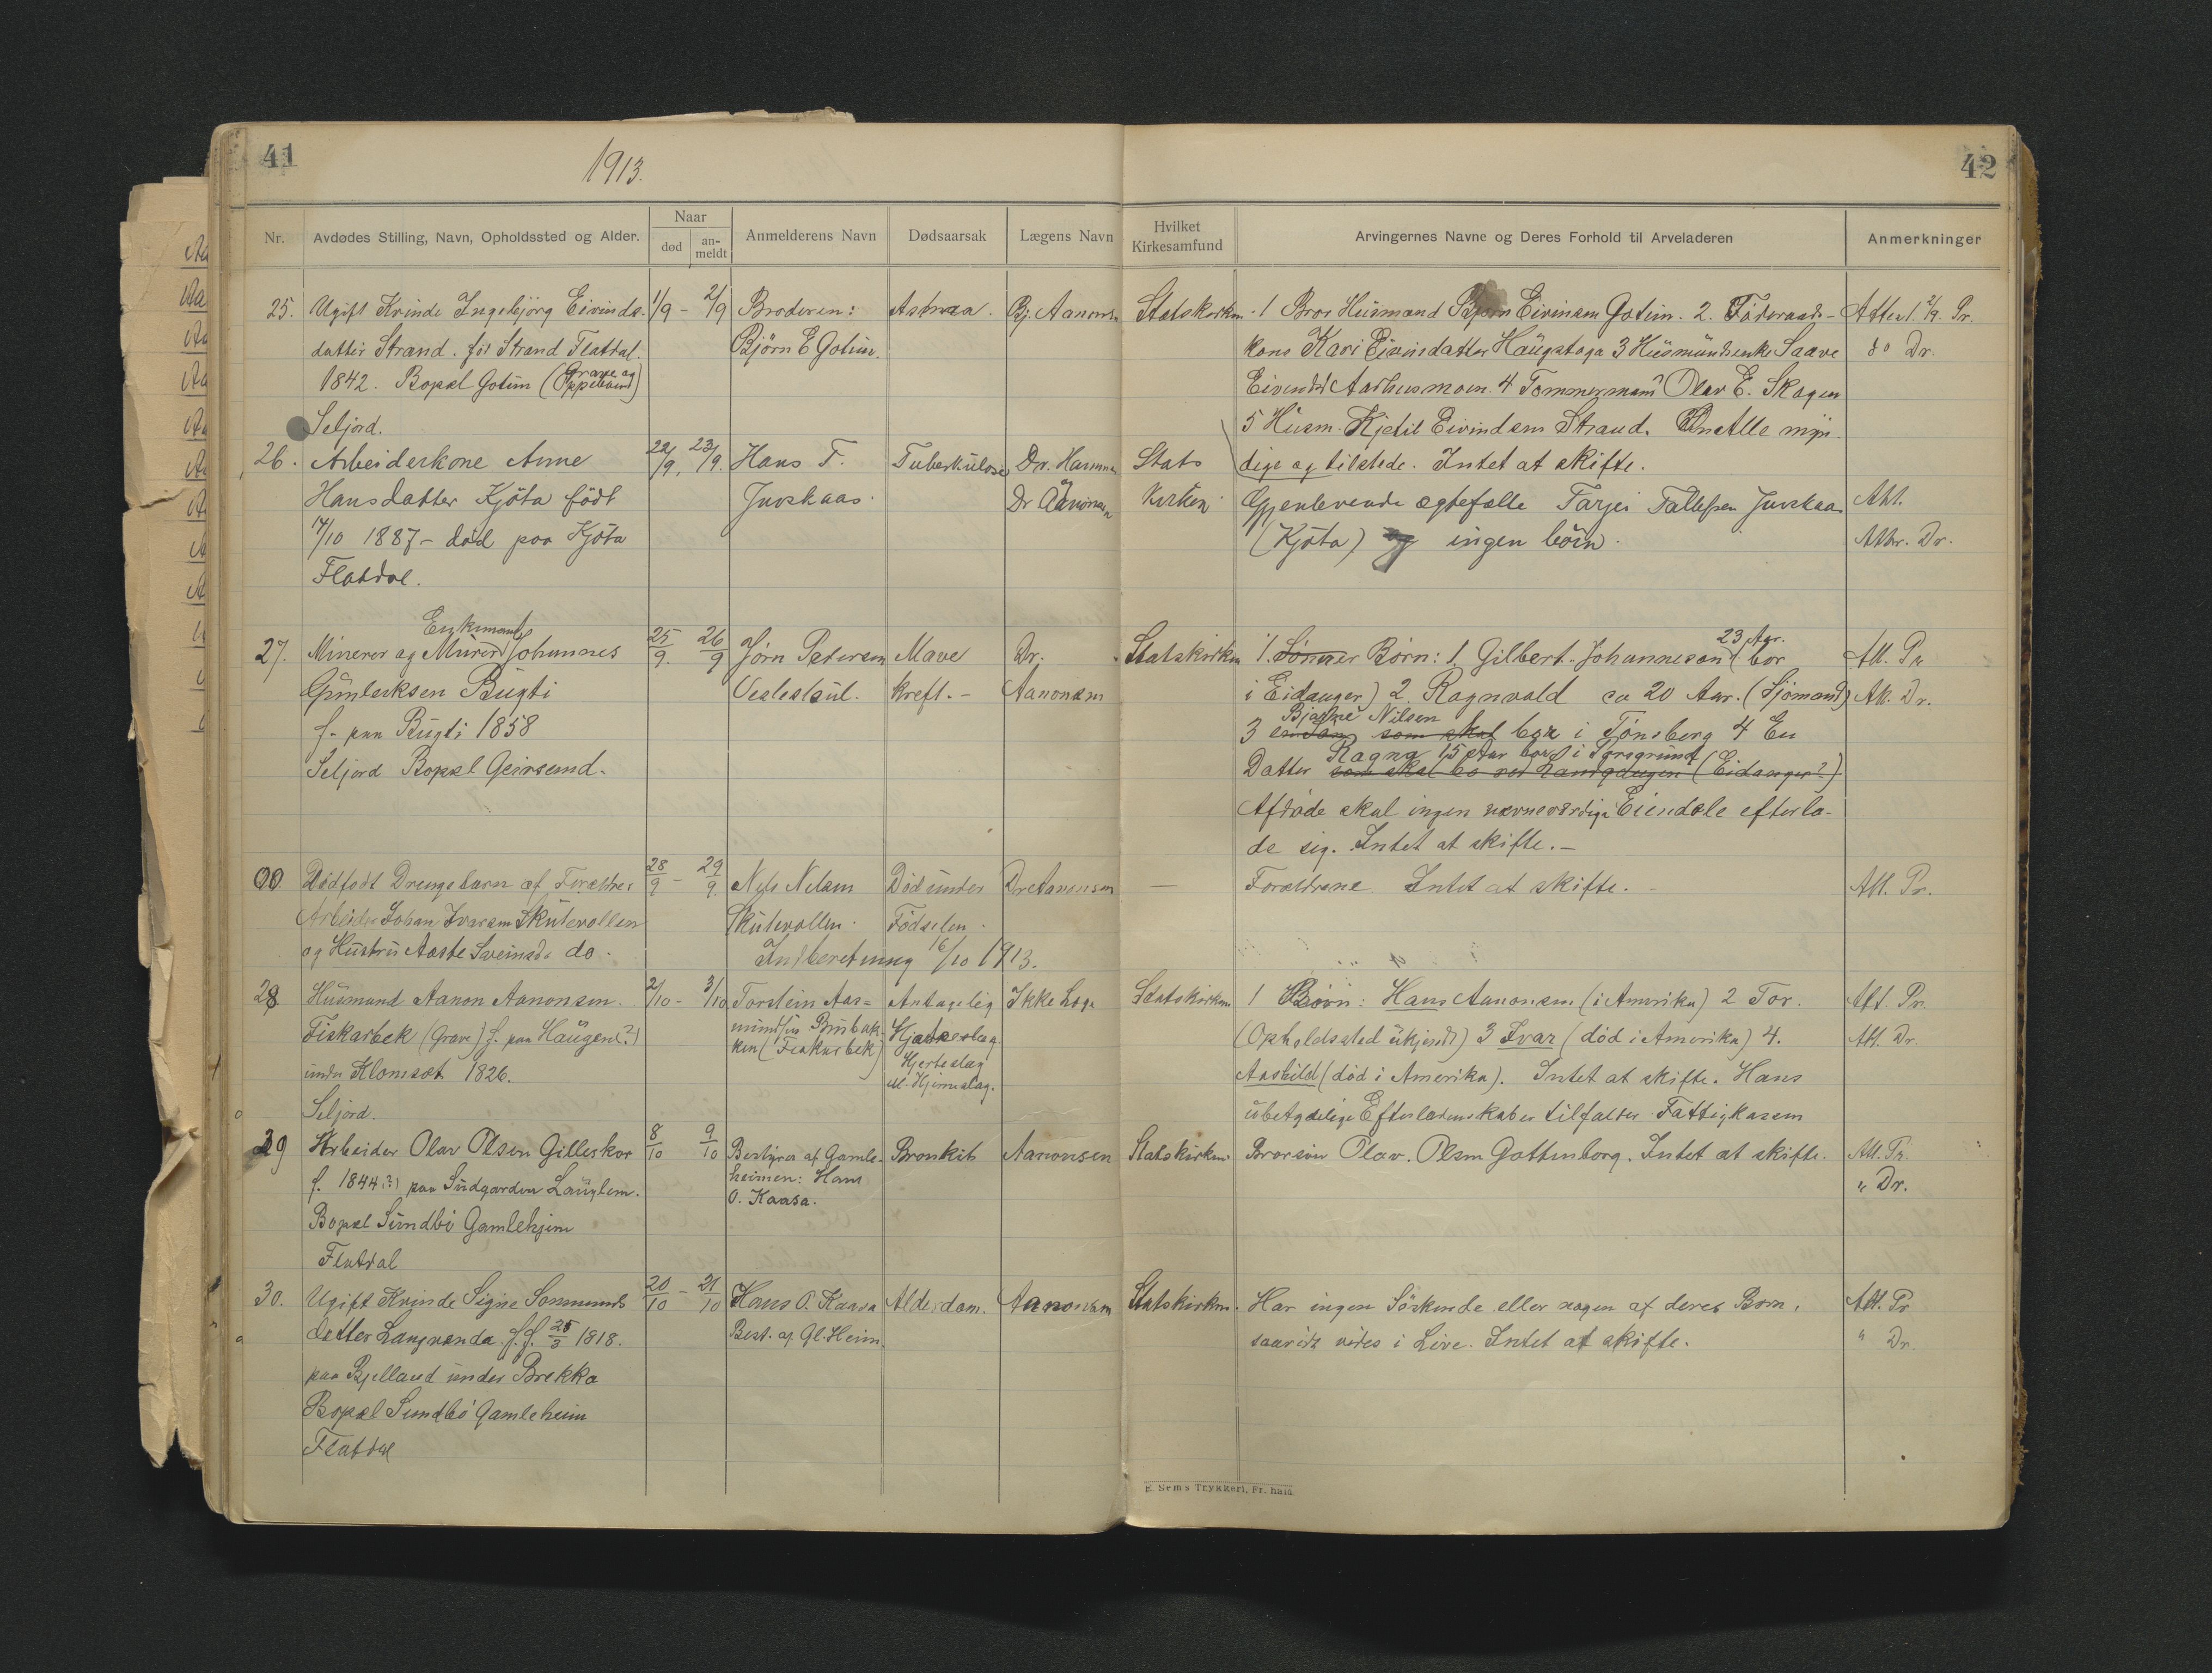 41
1913.
42
Nr.
Avdødes Stilling, Navn, Opholdssted og Alder.
Naar
død
an-
meldt
Anmelderens Navn
Dødsaarsak
Lægens Navn
Hvilket
Kirkesamfund
Arvingernes Navne og Deres Forhold til Arveladeren
Anmerkninger
25. Ugift Kvinde Ingebjörg Eivinds- 1/9 - 2/9 Broderen: Astma. Bj. Aanons
datter Strand. föd Strand Flatdal. Björn E Gotun.
1842. Bopæl Gotun (Grave og
Seljord.
26. Arbeiderkone Anne 22/9. 23/9. Hans T. Tuberkulose Dr. Hannas
Hansdatter Kjöta födt Juvskaas. Dr Aanonsen
17/10 1887 - död paa Kjöta
Flatdal.
Enkemand
27. Minerer og Murer Johannes 25/9. 26/9 Jörn Petersen Mave Dr.
Gunleiksen Bugti kreft. - Aanonsen
f. paa Bugti 1858
Seljord Bopæl Geirsund.
00 Dödfödt Drengebarn af Forældre 28/9 - 29/9. Nils Nilsen Död under Dr Aanonsen
Arbeider Johan Ivarsen Skutevollen Skutevollen. Födselen.
og Hustru Aaste Sveinsd. do. Indberetning 16/10 1913.
28 Husmand Aanon Aanonsen. 2/10 - 3/10 Torstein Aas= Antagelig Ikke Læge
Fiskarbek (Grave) f. paa Haugen(?) (Fiskarbek) Hjerteslag
under Klomset 1826. el. Hjerneslag.
Seljord.
29 Arbeider Olav Olsen Gilleskor 8/10 9/10 Bestyrer af Gamle- Bronkit Aanonsen
f. 1844(?) paa Sudgarden Lauglem. heimen: Hans
O. Kaasa.
Bopæl Sundbö Gamlehjem
Flatdal
30. Ugift Kvinde Signe Sonmunds 20/10 - 21/10 Hans O. Kaasa Alderdom. Aanonsen
datter Langvenda. f. f. 25/3 1818. Best. af Gl. Heim.
paa Bjelland under Brekka
Bopæl Sundbö Gamleheim
Flatdal
Statskirken. 1 Bror Husmand Björn Eivinsen Gotun. 2. Föderaads- Attest 2/9. Pr.
kone Kari Eivinsdatter Haugstoga 3 Husmandsenke Saave do Dr.
Eivindsd Aarhusmoen. 4 Tommermand Olav E. Skogen
5 Husm. Kjetil Eivindsen Strand. Alle myn-
Stats dige og tilstede. Intet at skifte.
Kirken. Gjenlevende ægtefelle Tarjei Tallefsen Juvskaas Att.
(Kjöta) og ingen börn. Attr. Dr.
Statskirken 1. Sønner Börn: 1. Gilbert Johannesen 23 Aar. (bor Att. Pr
i Eidanger) 2. Ragnvald ca 20 Aar. (Sjömand) Att. Dr.
Bjarne Nilsen
3 som skal bor i Tönsberg 4 En
Ragna 15 Aar bor i Porsgrund
Datter som skal bo (Eidanger?)
Afdöde skal ingen nævneværdige Eiendele efterla-
de sig. Intet at skifte. -
— Forældrene. Intet at skifte. - Att. Pr.
Statskirken 1 Börn: Hans Aanonsen (i Amerika) 2 Tor. Att. Pr.
(Opholdssted ukjendt) 3 Ivar (död i Amerika) 4. Att. Dr.
Aashild (död i Amerika). Intet at skifte. Hans
ubetydelige Efterladenskaber tilfalder Fattigkassen
Statskirken. Brorsön Olav Olsen Gottenborg. Intet at skifte. Att. Pr.
" Dr.
Statskirken. Har ingen Söskende eller nogen af deres Børn, Att. Pr
saavidt vides i Live. Intet at skifte. " Dr.
E. Sems Trykkeri, Fr.hald